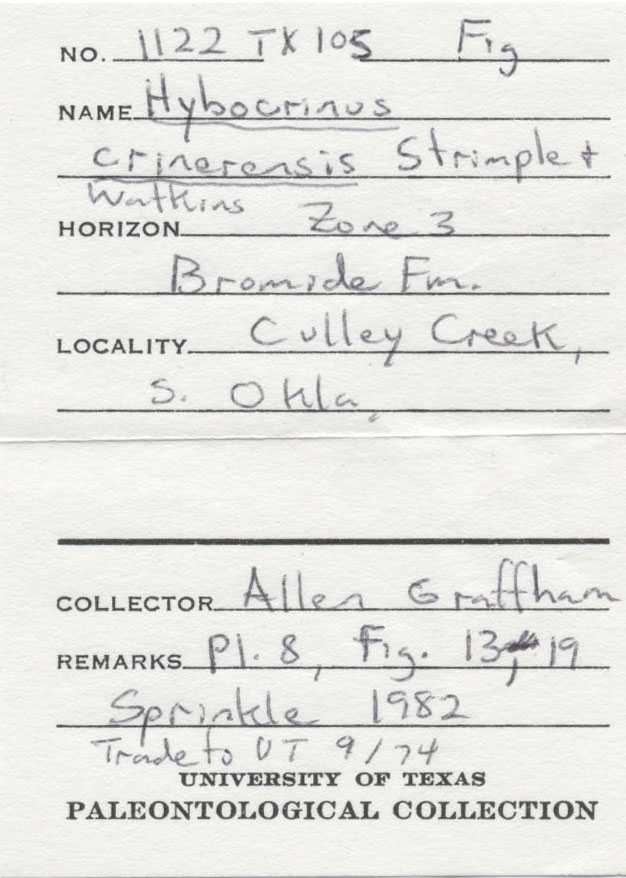 NO. 1122 TX 105 Fig
NAME Hybocrinus
crinerensis Strimple +
Watkins
HORIZON Zone 3
Bromide Fm.
LOCALITY Culley Creek,
S. Okla.
COLLECTOR Allen Graffham
REMARKS Pl. 8, Fig. 13, 19
Sprinkle 1982
Trade to UT 9/74
UNIVERSITY OF TEXAS
PALEONTOLOGICAL COLLECTION